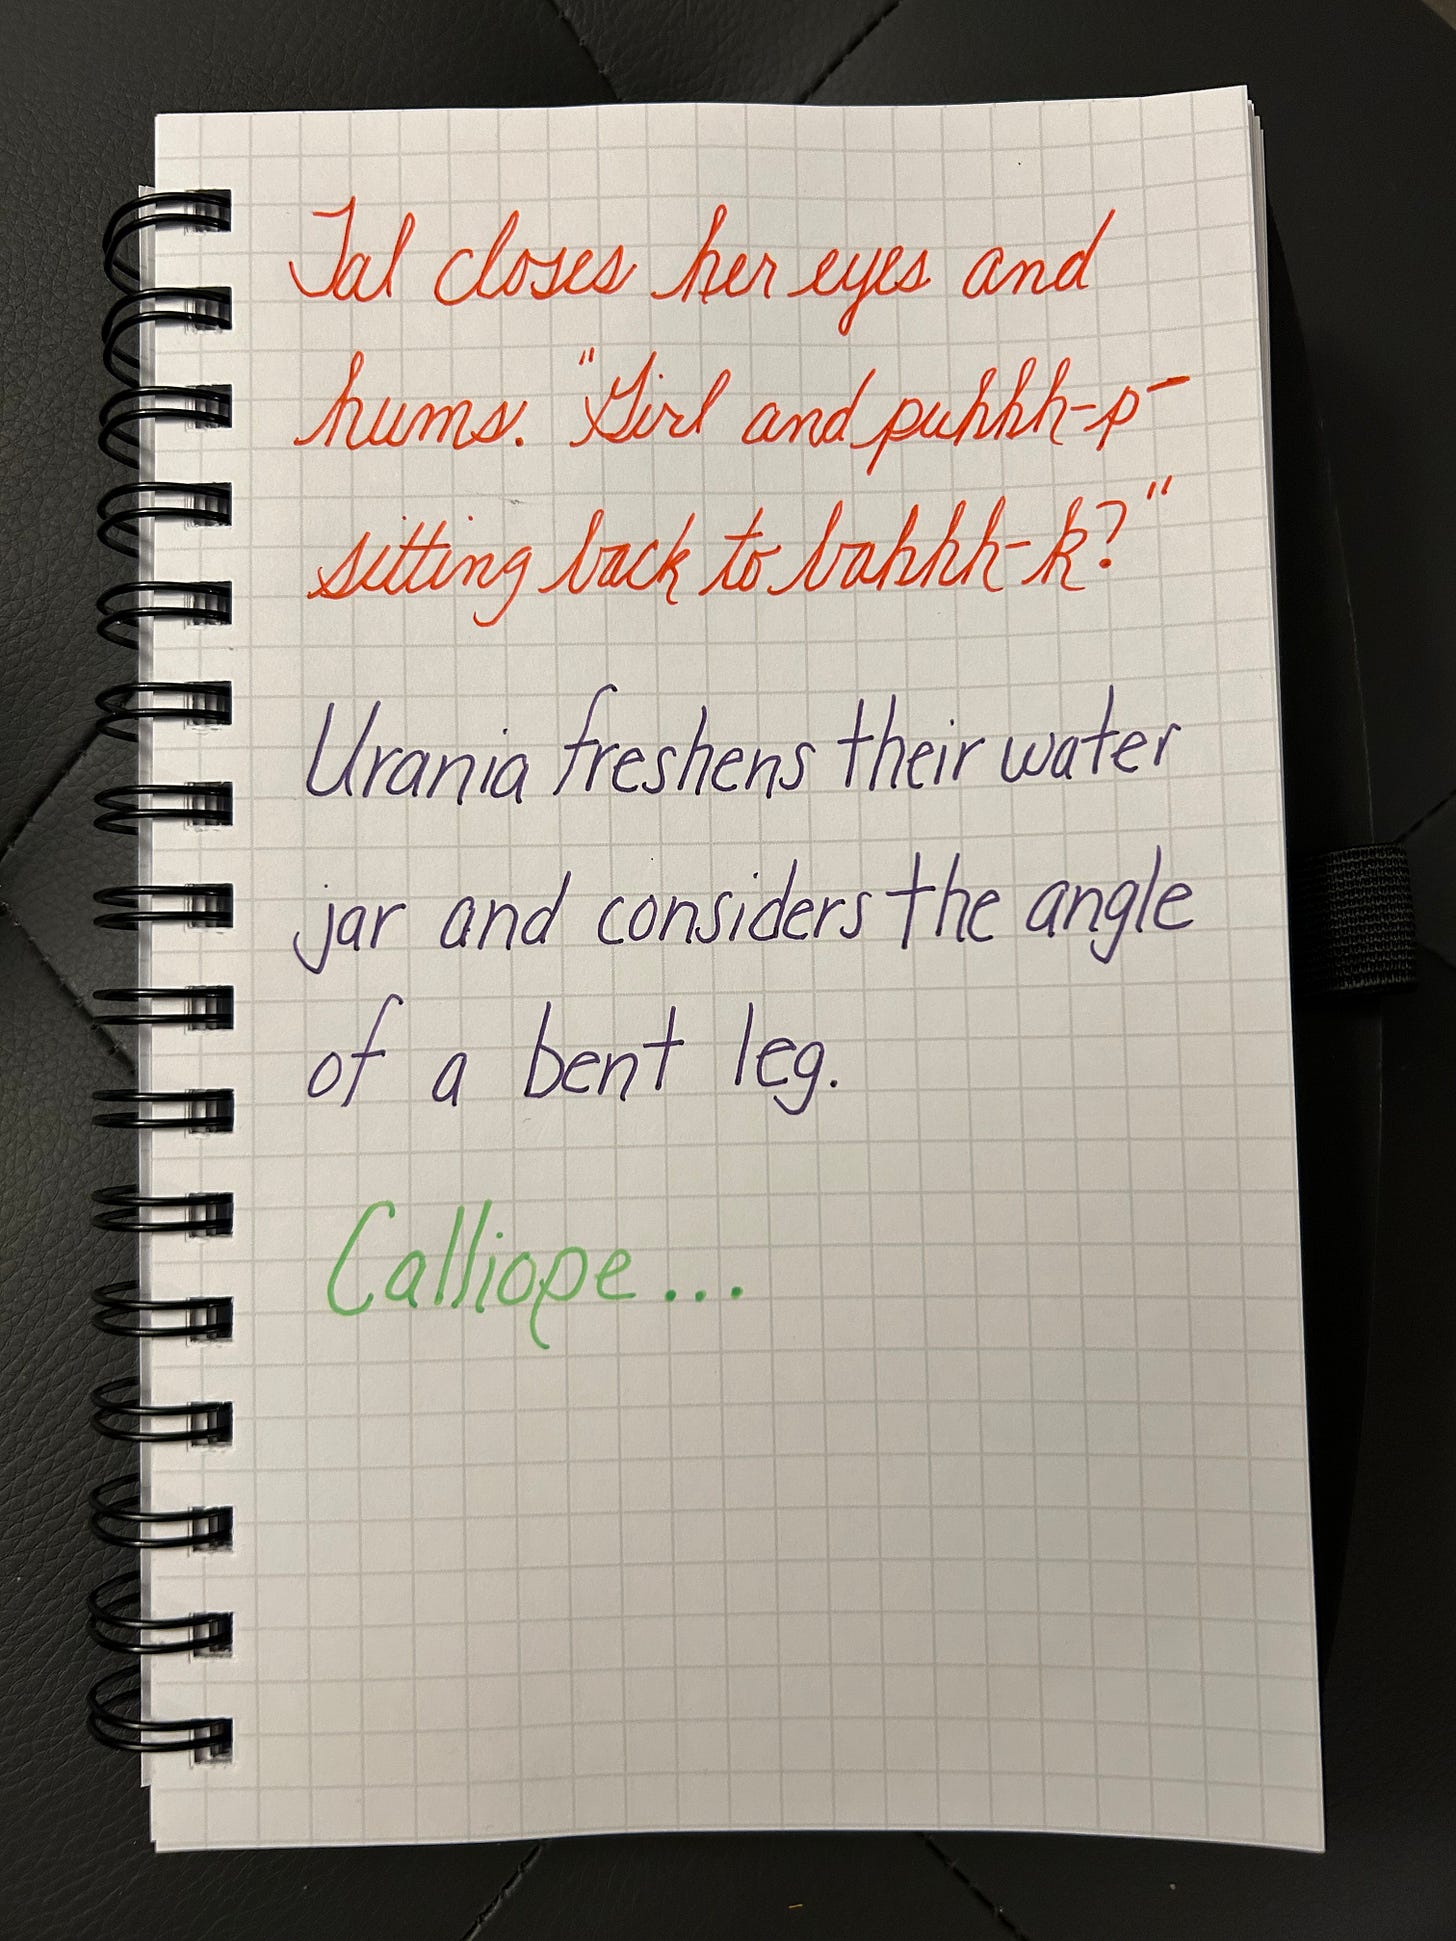 Tal closes her eyes and
hums. "Girl and puhhh-p-
sitting back to bahhh-k?"
Urania freshens their water
jar and considers the angle
of a bent leg.
Calliope...